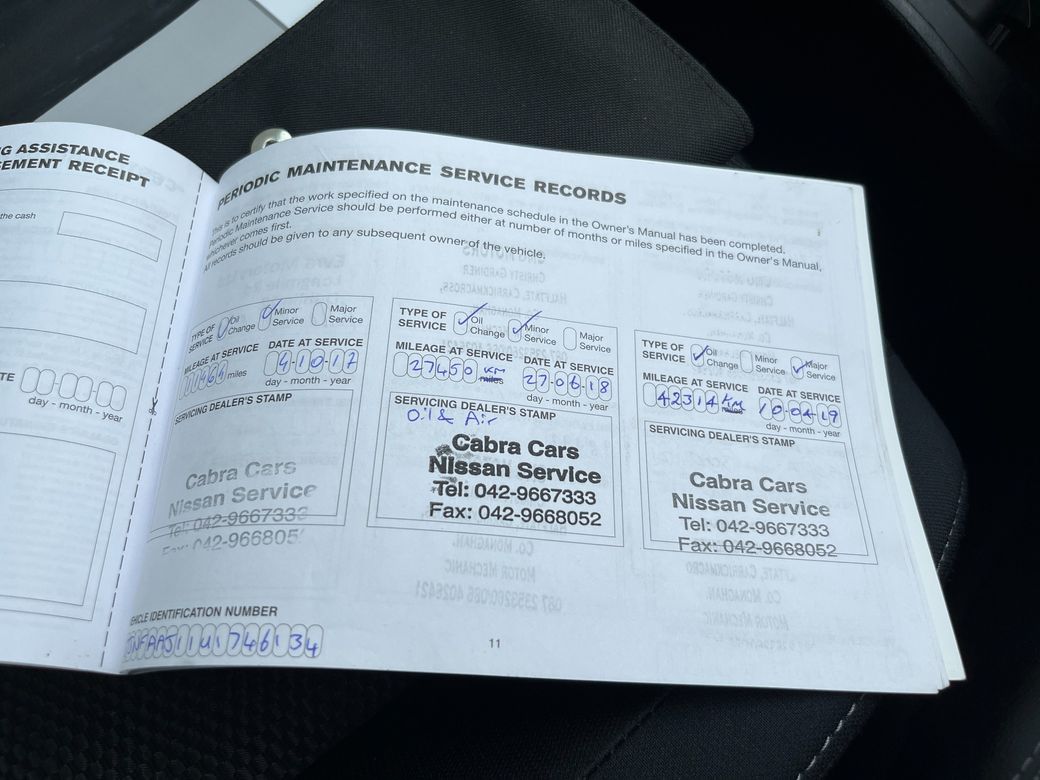 G ASSISTANCE
EMENT RECEIPT
the cash
TE
day - month - year
PERIODIC MAINTENANCE SERVICE RECORDS
This is to certify that the work specified on the maintenance schedule in the Owner's Manual has been completed.
Periodic Maintenance Service should be performed either at number of months or miles specified in the Owner's Manual,
whichever comes first.
All records should be given to any subsequent owner of the vehicle.
TYPE OF SERVICE Oil Change Minor Service Major Service
MILEAGE AT SERVICE DATE AT SERVICE
miles 4-10-17
day - month - year
SERVICING DEALER'S STAMP
Cabra Cars
Nissan Service
Tel: 042-9667333
Fax: 042-966805
TYPE OF SERVICE Oil Change Minor Service Major Service
MILEAGE AT SERVICE DATE AT SERVICE
27450 KM miles 27-06-18
day - month - year
SERVICING DEALER'S STAMP
Oil & Air
Cabra Cars
Nissan Service
Tel: 042-9667333
Fax: 042-9668052
TYPE OF SERVICE Oil Change Minor Service Major Service
MILEAGE AT SERVICE DATE AT SERVICE
42314 KM miles 10-04-19
day - month - year
SERVICING DEALER'S STAMP
Cabra Cars
Nissan Service
Tel: 042-9667333
Fax: 042-9668052
VEHICLE IDENTIFICATION NUMBER
11